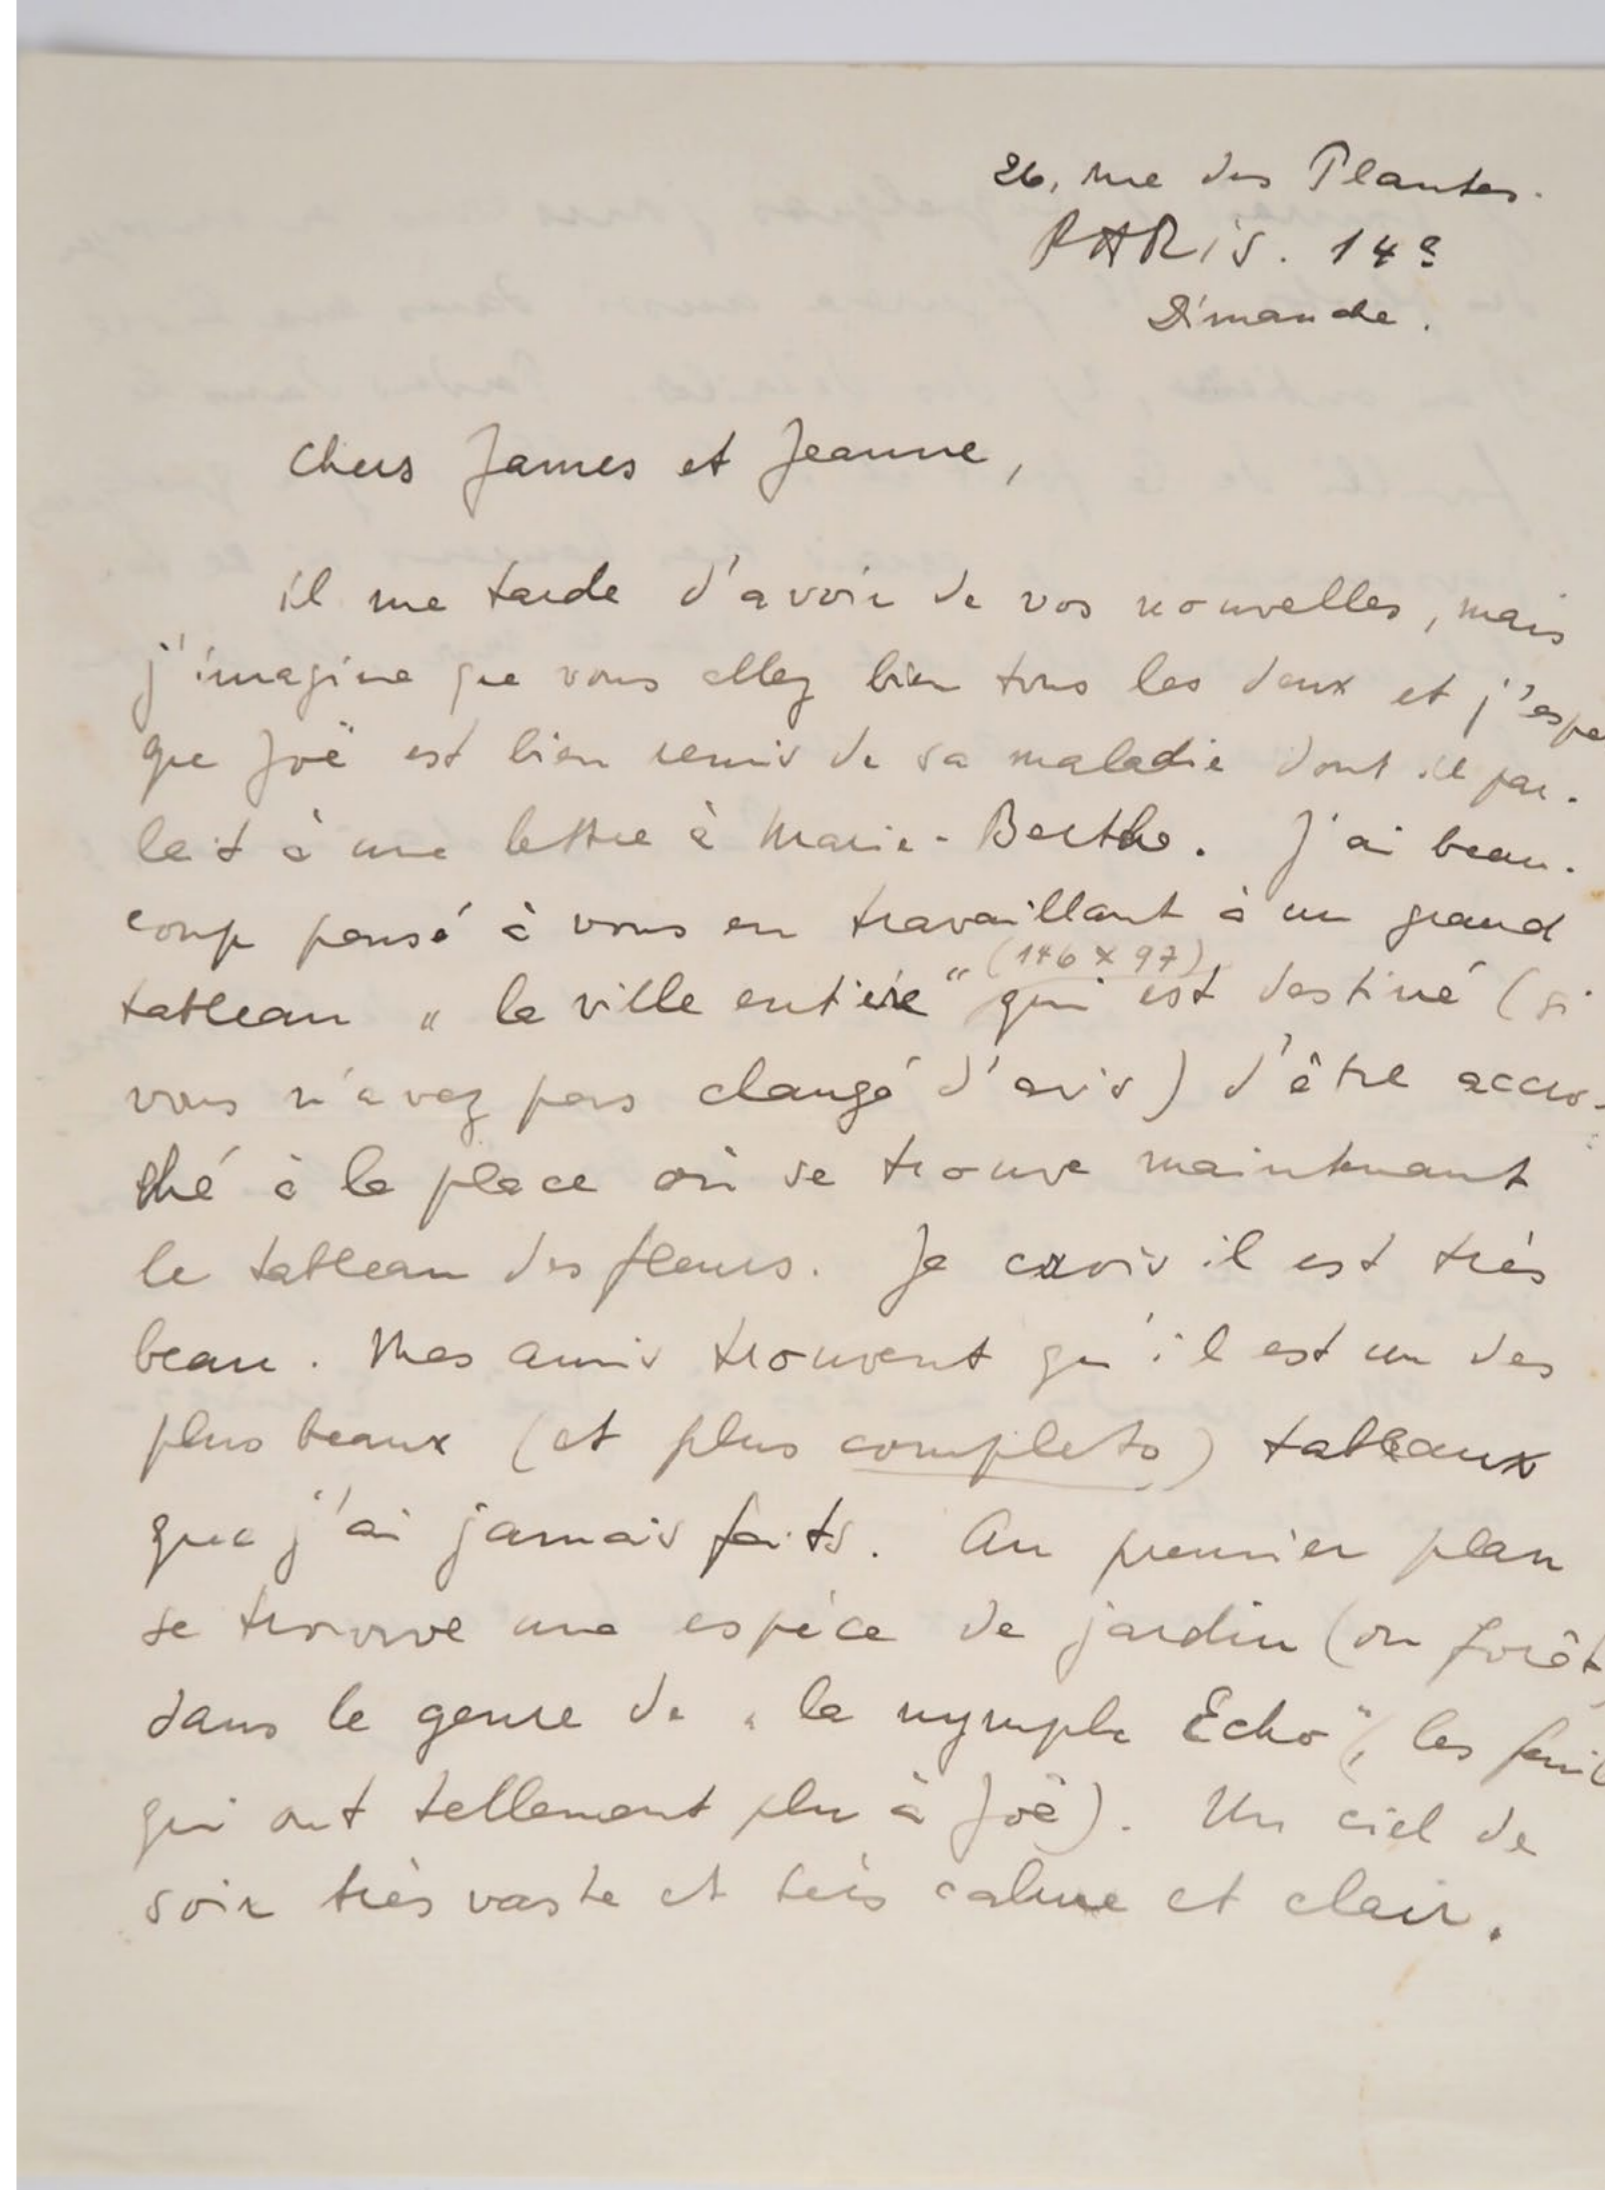 26, rue des Plantes.
PARiS. 14e
Dimanche.
Chers James et Jeanne,
il me tarde d'avoir de vos nouvelles, mais
j'imagine que vous allez bien tous les deux et j'espe
que Joë est bien remis de sa maladie dont il par-
lait à une lettre à Marie-Berthe. J'ai beau-
coup pensé à vous en travaillant à un grand
(146 x 97)
tableau "la ville entière" qui est destiné (si
vous n'avez pas changé d'avis) d'être accro-
ché à la place où se trouve maintenant
le tableau des fleurs. Je crois il est très
beau. Mes amis trouvent qu'il est un des
plus beaux (et plus complets) tableaux
que j'ai jamais faits. Au premier plan
se trouve une espèce de jardin (ou forêt
dans le genre de "la nymphe Echo", les
qui ont tellement plu à Joë). Un ciel de
soir très vaste et très calme et clair.